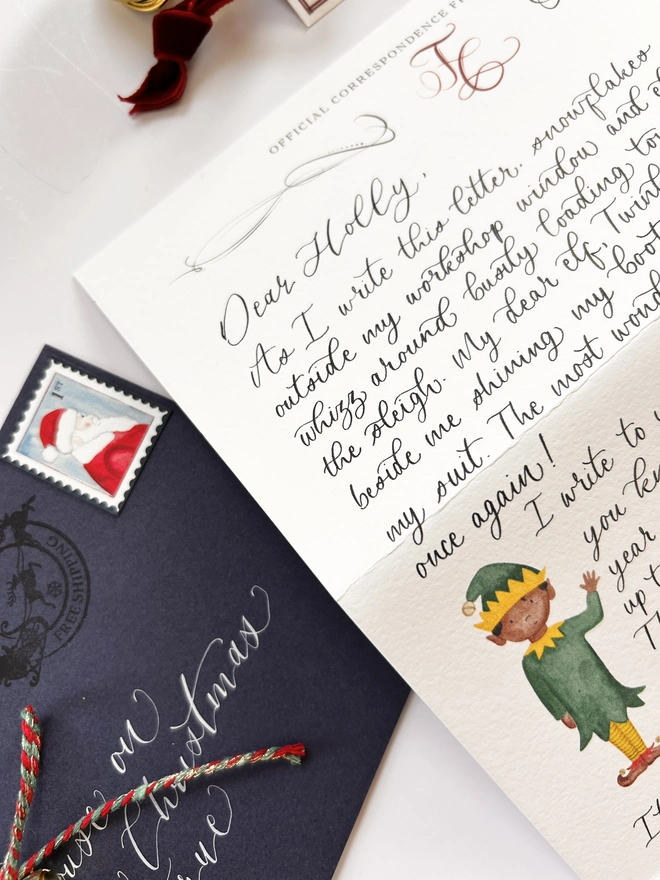 OFFICIAL CORRESPONDENCE
FC
Dear Holly,
As I write this letter, snowflakes
outside my workshop window and
whizz around busily loading
the sleigh. My dear elf,
beside me shining my boot
my suit. The most
once again!
I write to
you
year
up
1ST
FREE SHIPPING
on
Christmas